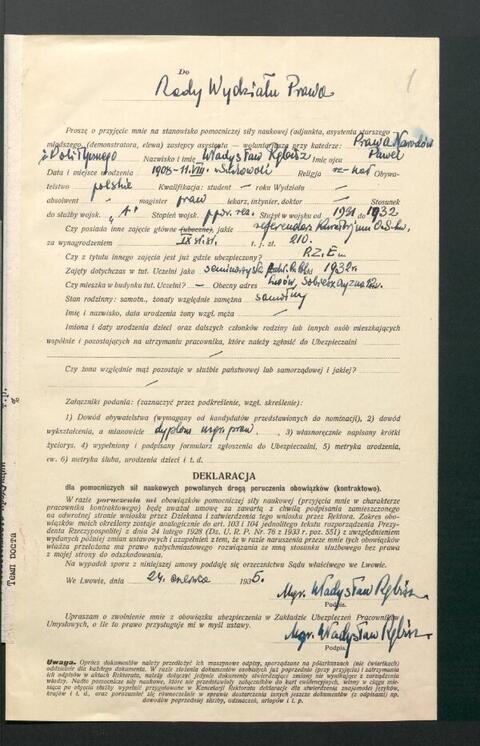 1
Do
Rady Wydziału Prawa
Proszę o przyjęcie mnie na stanowisko pomocniczej siły naukowej (adjunkta, asystenta starszego
młodszego, (demonstratora, elewa) zastępcy asystenta — wolontariusza przy katedrze: Prawa Narodów
i Politycznego Nazwisko i imię Władysław Rębisz Imię ojca Paweł
Data i miejsce urodzenia 1908-11.VIII. Religja rz-kat Obywa-
telstwo polskie Kwalifikacja: student — roku Wydziału —
absolwent magister praw lekarz, inżynier, doktor — Stosunek
do służby wojsk. "A" Stopień wojsk. ppor. rez. Służył w wojsku od 1931 do 1932
Czy posiada inne zajęcie główne (uboczne), jakie referendarz Kuratorjum O.S.Lw.
za wynagrodzeniem IX st. sł. t. j. zł. 210.
Czy z tytułu innego zajęcia jest już gdzie ubezpieczony?
Zajęty dotychczas w tut. Uczelni jako 1932 r.
Czy mieszka w budynku tut. Uczelni? — Obecny adres Lwów,
Stan rodzinny: samotn., żonaty względnie zamężna samotny
Imię i nazwisko, data urodzenia żony wzgl. męża —
Imiona i daty urodzenia dzieci oraz dalszych członków rodziny lub innych osób mieszkających
wspólnie i pozostających na utrzymaniu pracownika, które należy zgłosić do Ubezpieczalni
Czy żona względnie mąż pozostaje w służbie państwowej lub samorządowej i jakiej?
Załączniki podania: (zaznaczyć przez podkreślenie, wzgl. skreślenie):
1) Dowód obywatelstwa (wymagany od kandydatów przedstawionych do nominacji), 2) dowód
wykształcenia, a mianowicie dyplom mgr. praw. , 3) własnoręcznie napisany krótki
życiorys, 4) wypełniony i podpisany formularz zgłoszenia do Ubezpieczalni, 5) metryka urodzenia,
ew. 6) metryka ślubu, urodzenia dzieci i t. d.
DEKLARACJA
dla pomocniczych sił naukowych powołanych drogą poruczenia obowiązków (kontraktowo).
W razie poruczenia mi obowiązków pomocniczej siły naukowej (przyjęcia mnie w charakterze
pracownika kontraktowego) będę uważał umowę za zawartą z chwilą podpisania zamieszczonego
na odwrotnej stronie wniosku przez Dziekana i zatwierdzenia tego wniosku przez Rektora. Zakres obo-
wiązków moich określony zostaje analogicznie do art. 103 i 104 jednolitego tekstu rozporządzenia Prezy-
denta Rzeczypospolitej z dnia 24 lutego 1928 (Dz. U. R. P. Nr. 76 z 1933 r. poz. 551) z uwzględnieniem
wydanych później zmian ustawowych i uzupełnień z tem, że w razie naruszenia przeze mnie tych obowiązków
władza przełożona ma prawo natychmiastowego rozwiązania ze mną stosunku służbowego bez prawa
z mej strony do odszkodowania.
Na wypadek sporów z niniejszej umowy poddaję się orzecznictwu Sądu właściwego we Lwowie.
We Lwowie, dnia 24. czerwca 1935.
Mgr. Władysław Rębisz
Podpis.
Upraszam o zwolnienie mnie z obowiązku ubezpieczenia w Zakładzie Ubezpieczeń Pracowników
Umysłowych, o ile to prawo przysługuje mi w myśl ustawy.
Mgr. Władysław Rębisz
Podpis.
Uwaga. Oprócz dokumentów należy przedłożyć ich maszynowe odpisy, sporządzone na półarkuszach (nie ćwiartkach)
oddzielnie dla każdego dokumentu. W razie złożenia dokumentów osobistych już poprzednio (przy przyjęciu) i zatrzymania
ich odpisów w aktach Rektoratu, należy dołączyć jedynie dokumenty stwierdzające zmiany nie wynikające z zarządzenia
władzy. Nadto pomocnicze siły naukowe, które nie przedstawiały załączników do kart ewidencyjnych, winny w ciągu mie-
siąca po objęciu służby wypełnić przygotowane w Kancelarji Rektoratu deklaracje dla stwierdzenia znajomości języków,
krajów i t. d., oraz porozumieć się równocześnie w sprawie dostarczenia innych jeszcze dokumentów (z odpisami) np.
dowodów poprzedniej służby, odznaczeń, urlopów i t. p.
Темп поста